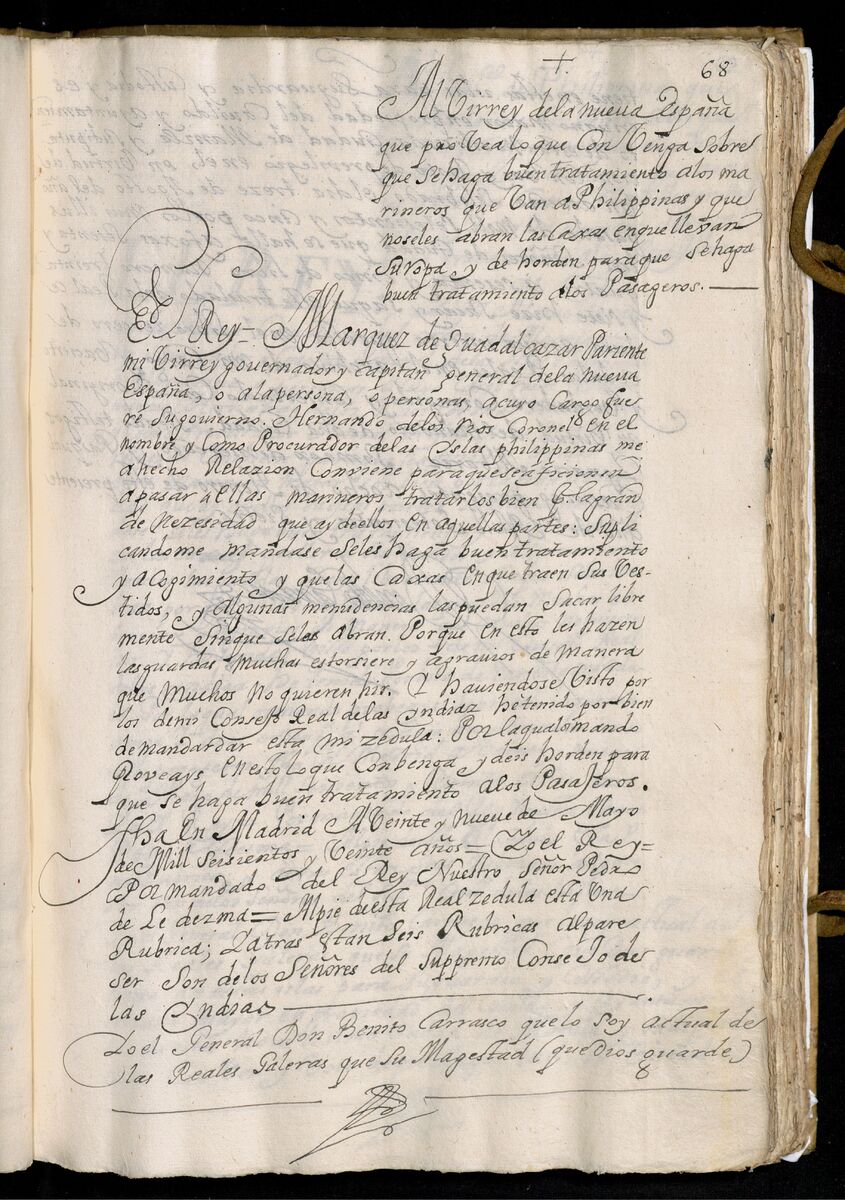 +.
68
Al Virrey dela nueva España
que provea lo que Con Venga Sobre
que Se haga buen tratamiento alos ma
rineros que Van a Philippinas y que
noseles abran las Caxas en que llevan
Su ropa y de horden para que Se haga
buen tratamiento alos Pasageros.
El Rey = Marquez de Guadalcazar Pariente
mi Virrey governador y capitan general dela nueva
España, o ala persona, o personas, acuyo Cargo fue
re Sugovierno. Hernando delos Rios Coronel en el
nombre y Como Procurador delas Yslas philippinas me
a hecho Relazion Conviene para que se aficionen
apasar a Ellas marineros tratarlos bien lagran
de Nezesidad que ay deellos En aquellas partes: Supli
candome mandase Seles haga buen tratamiento
y acogimiento y que las Caxas En que traen Sus Ves-
tidos, y algunas menudencias las puedan Sacar libre
mente Sin que Seles abran. Porque en esto les hazen
las guardas muchas estorsiere y agravios de manera
que Muchos No quieren hir. Y haviendose Visto por
los demi Consejo Real de las Yndiaz he tenido por bien
demandar dar esta mi zedula: Por laqual o mando
Proveays En esto lo que Conbenga y deis horden para
que Se haga buen tratamiento alos Pasajeros.
fha En Madrid A Veinte y nueve de Mayo
de Mill Seisientos y Veinte años = Yo el Rey =
Por mandado del Rey Nuestro Señor Pedro
de Ledezma = Al pie de esta Real zedula esta Una
Rubrica; Y atras estan Seis Rubricas alpare
ser Son delos Señores del Suppremo Conse Jo de
las Yndias
Yo el General Don Benito Carrasco que lo Soy actual de
las Reales Galeras que Su Magestad (que Dios guarde)